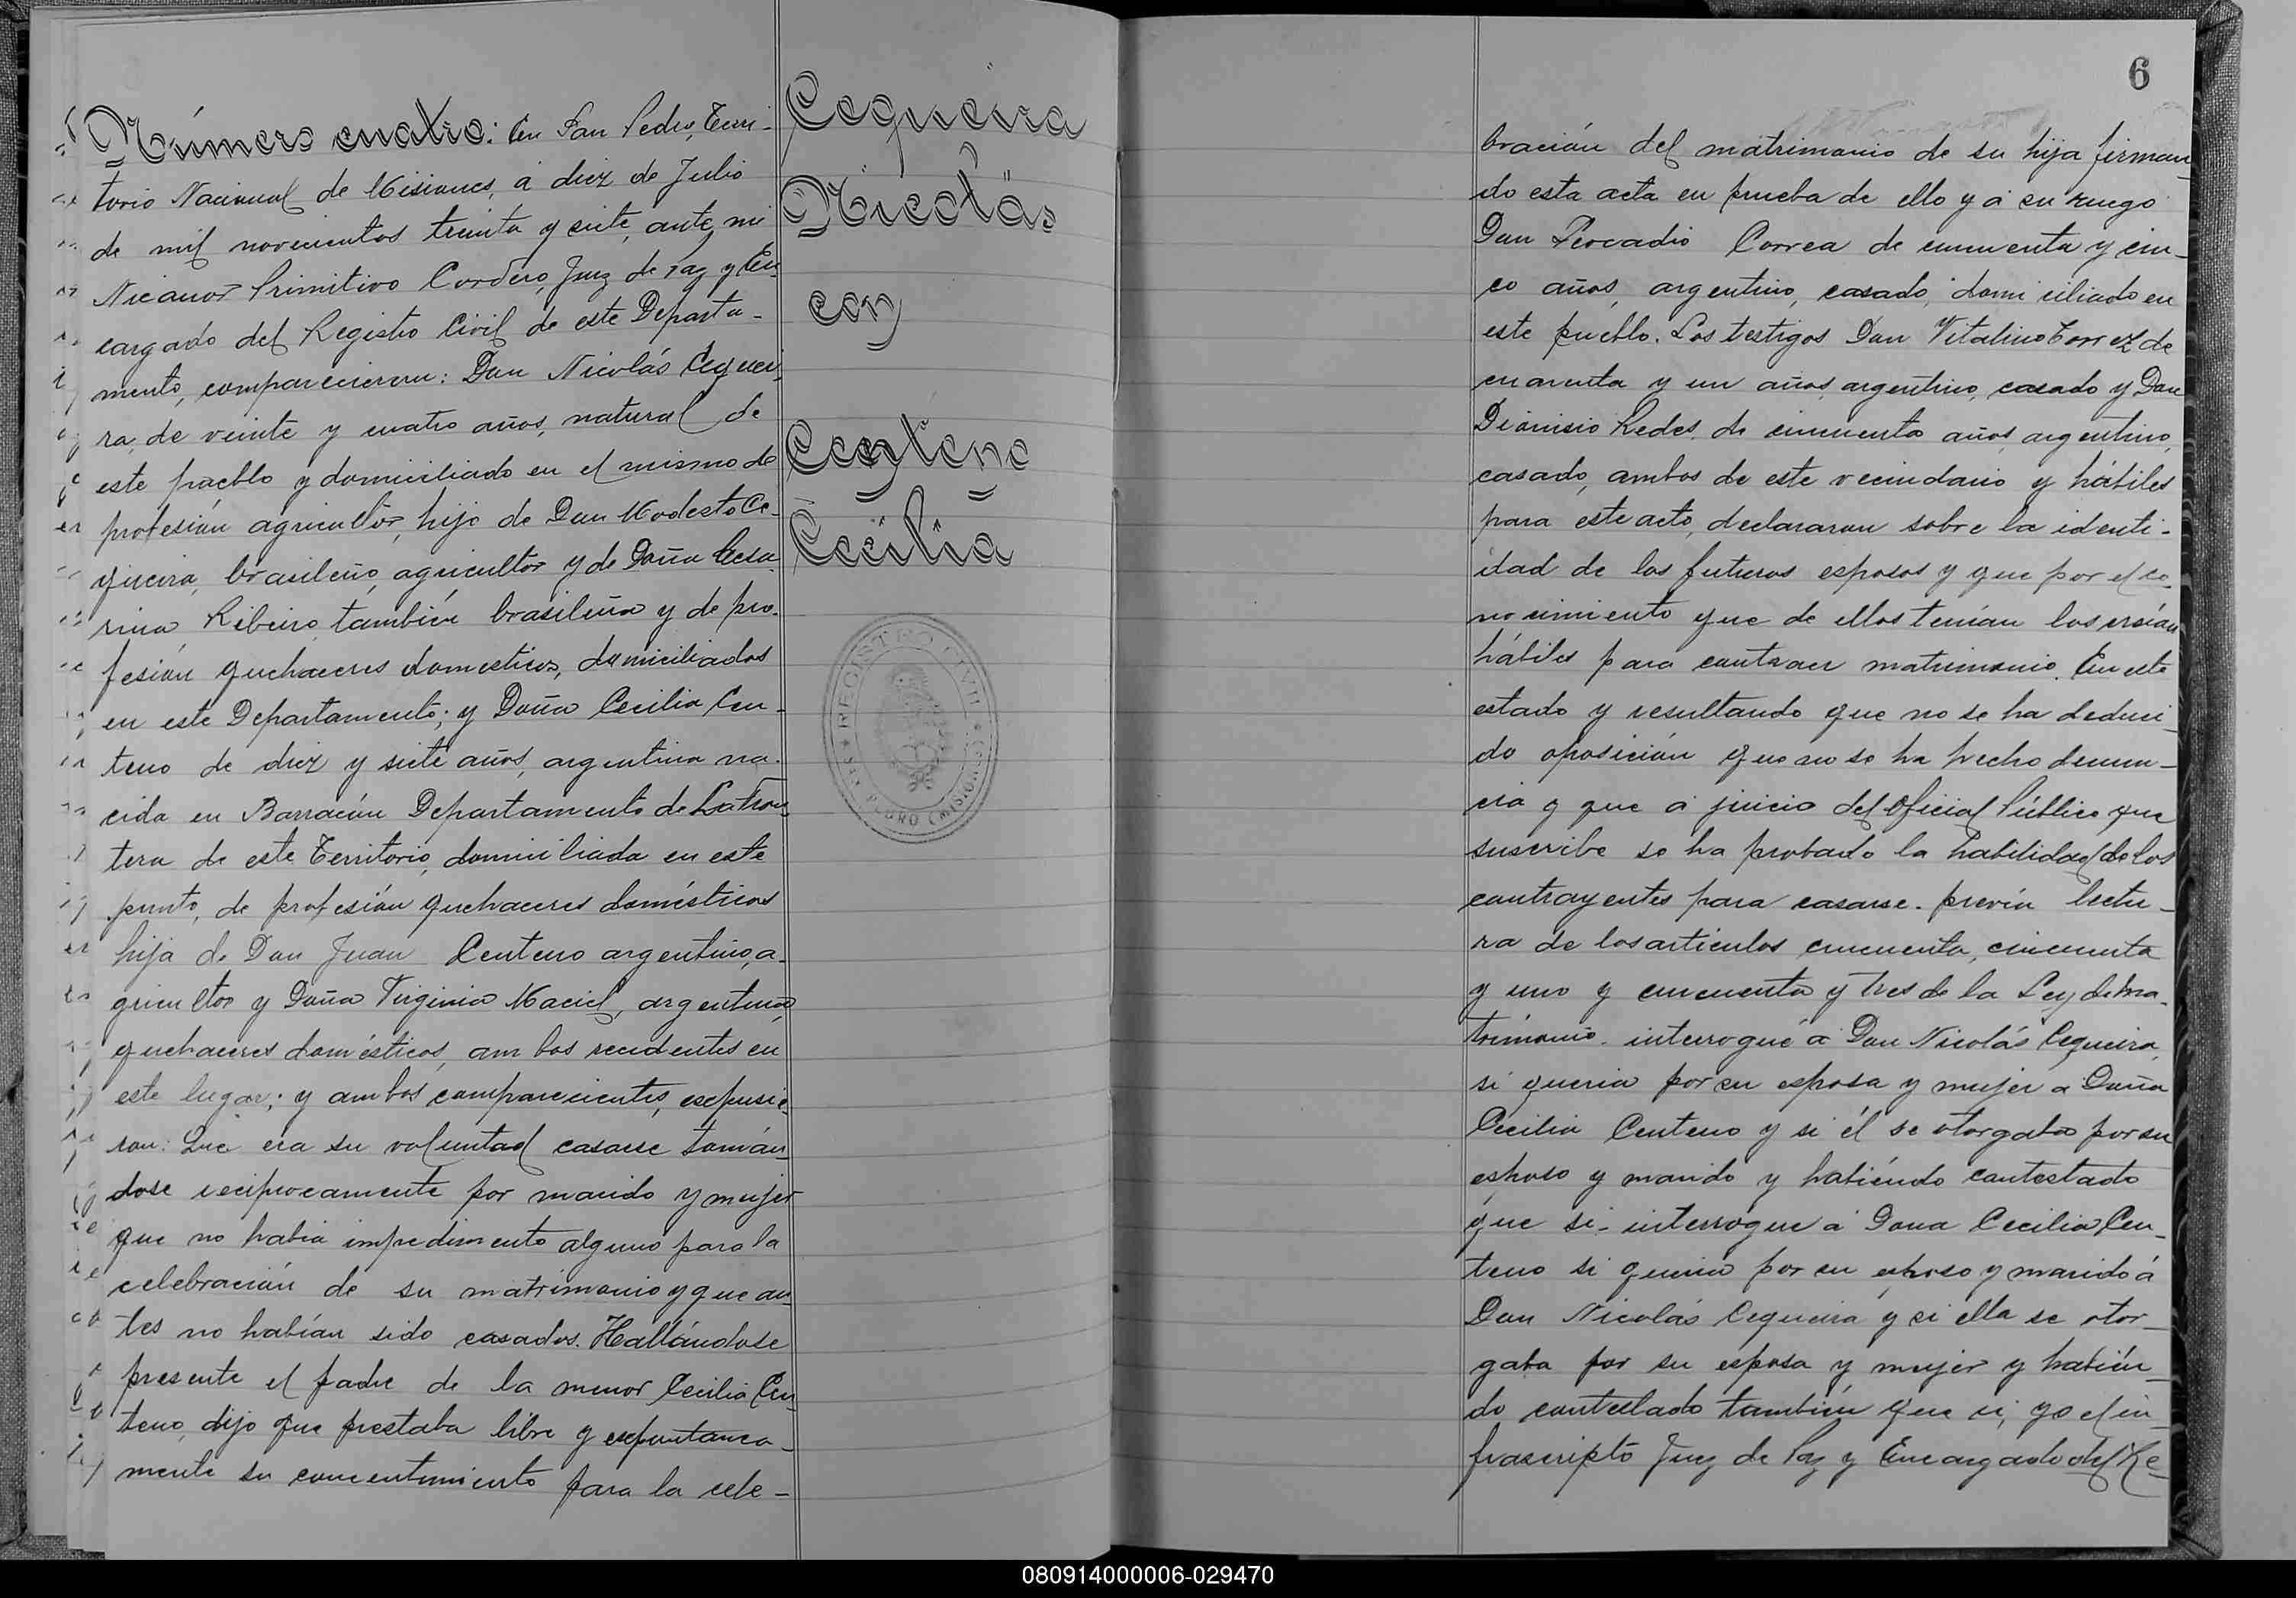 Número cuatro: En San Pedro, Terri-
torio Nacional de Misiones, á diez de Julio
de mil novecientos treinta y siete, ante mi
Nicanor Primitivo Cordero, Juez de Paz y En-
cargado del Registro Civil de este Departa-
mento, comparecieron: Don Nicolás Cequei-
ra, de veinte y cuatro años, natural de
este pueblo y domiciliado en el mismo de
profesión agricultor, hijo de Don Modesto Ce-
queira, brasileño, agricultor y de Doña
Ribeiro, también brasileña y de pro-
fesión quehaceres domesticos, domiciliados
en este Departamento; y Doña Cecilia Cen-
teno de diez y siete años, argentina na-
cida en Barracón Departamento de Lafron-
tera de este Territorio, domiciliada en este
punto, de profesión quehaceres domésticos
hija de Don Juan Centeno argentino, a-
gricultor y Doña Virginia Maciel, argentina,
quehaceres domésticos, ambos recidentes en
este lugar; y ambos comparecientes, espusie-
ron: Que era su voluntad casarse tomán-
dose reciprocamente por marido y mujer
que no habia impedimento alguno para la
celebración de su matrimonio y que an-
tes no habían sido casados. Hallándose
presente el padre de la menor Cecilia Cen-
teno, dijo que prestaba libre y espontanea-
mente su concentimiento para la cele-
Cequeira
Nicolás
con
Centeno
Cecilia
REGISTRO CIVIL
SAN PEDRO (MISIONES)
6
bración del matrimonio de su hija firman-
do esta acta en prueba de ello y á su ruego
Don Leocadio Correa de cincuenta y cin-
co años, argentino, casado, domiciliado en
este pueblo. Los testigos Don Vitalino Torrez de
cuarenta y un años, argentino, casado y Don
Dionisio Redes, de cincuenta años, argentino,
casado, ambos de este vecindario y hábiles
para este acto, declararon sobre la identi-
dad de los futuros esposos y que por el co-
nocimiento que de ellos tenían los creían
hábiles para contraer matrimonio. En este
estado y resultando que no se ha deduci-
do oposición que no se ha hecho denun-
cia y que á juicio del Oficial Público que
suscribe se ha probado la habilidad de los
contrayentes para casarse. previa lectu-
ra de los articulos cincuenta, cincuenta
y uno y cincuenta y tres de la Ley de ma-
trimonio. interrogué á Don Nicolás Cequeira,
si queria por su esposa y mujer á Doña
Cecilia Centeno y si él se otorgaba por su
esposo y marido y habiendo contestado
que si. interrogue á Dona Cecilia Cen-
teno si queria por su esposo y marido á
Don Nicolás Cequeira y si ella se otor-
gaba por su esposa y mujer y habién-
do contestado también que si, yo el in-
frascripto Juez de Paz y Encargado del Re-
080914000006-029470